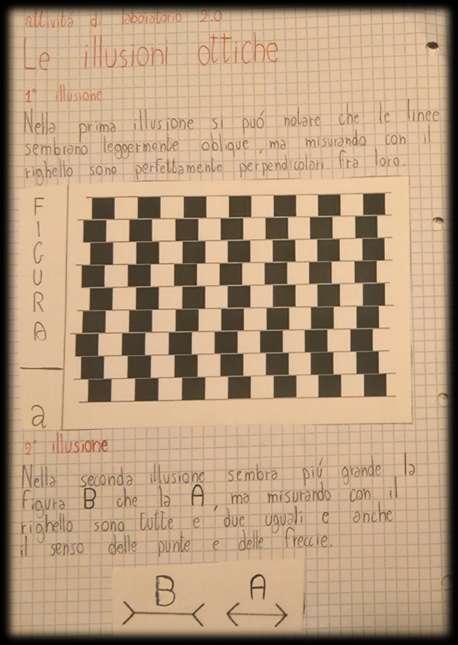 attività di laboratorio 2.0
Le illusioni ottiche
1° illusione
Nella prima illusione si puó notare che le linee
sembrano leggermente oblique, ma misurando con il
righello sono perfettamente perpendicolari fra loro.
F
I
G
U
R
A
a
2° illusione
Nella seconda illusione sembra piú grande la
figura B che la A, ma misurando con il
righello sono tutte e due uguali e anche
il senso delle punte e delle freccie.
B A